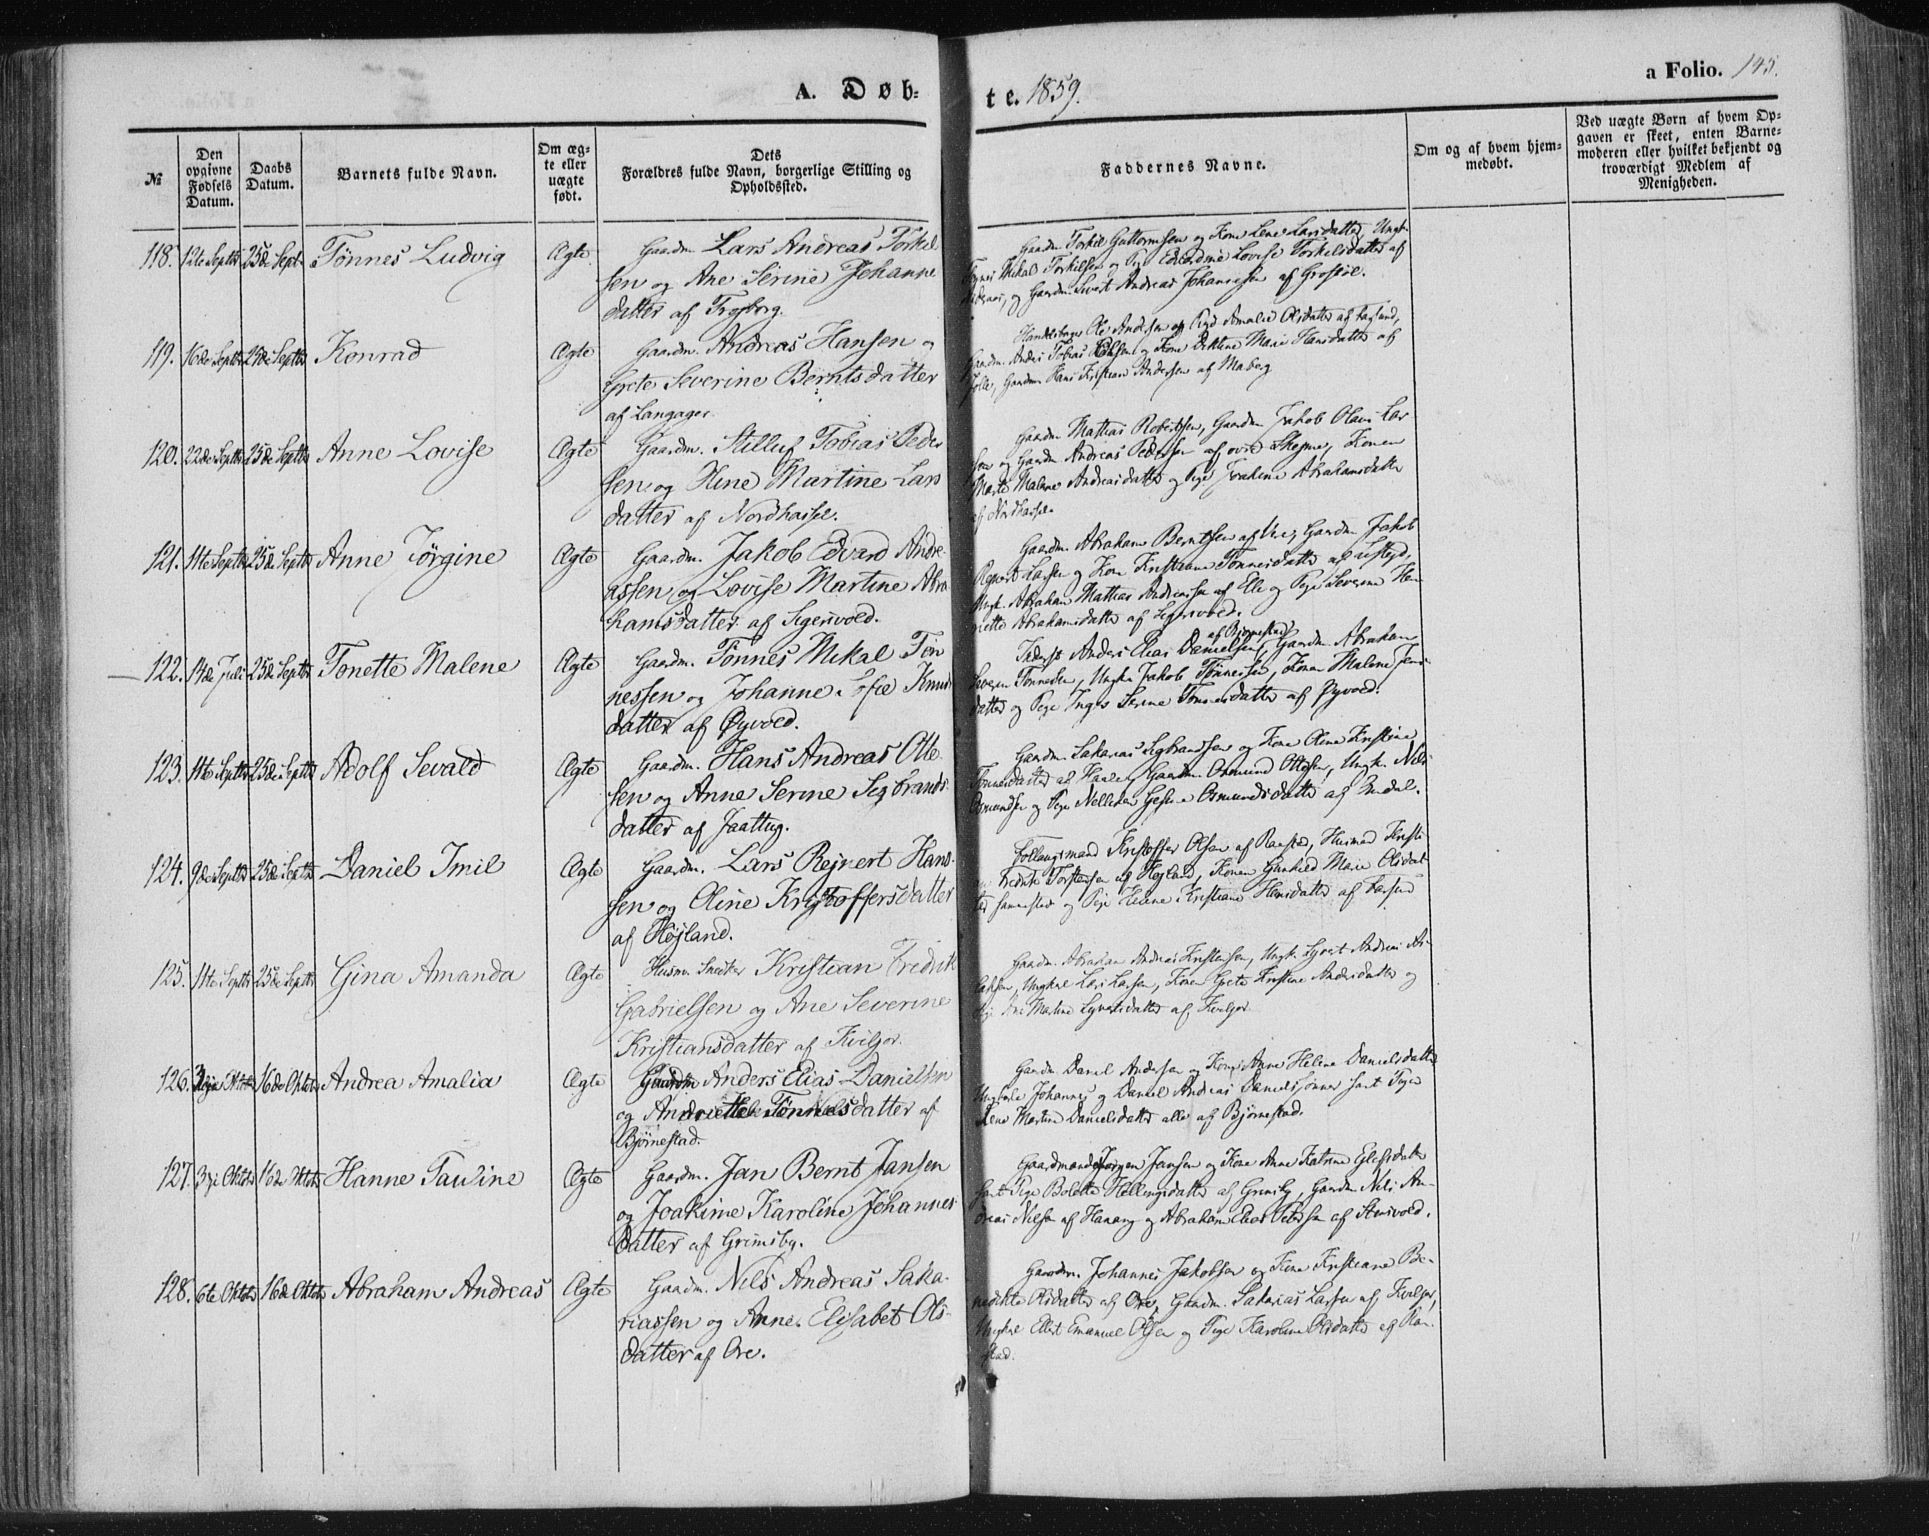 A. Døb-
te. 1859.
a Folio. 145.
№
Den opgivne Fødsels Datum.
Daabs Datum.
Barnets fulde Navn.
Om ægte eller uægte født.
Dets Forældres fulde Navn, borgerlige Stilling og Opholdssted.
Faddernes Navne.
Om og af hvem hjemmedøbt.
Ved uægte Børn af hvem Opgaven er skeet, enten Barnemoderen eller hvilket bekjendt og troværdigt Medlem af Menigheden.
118. 12te Septbr 25de Sept. Tönnes Ludvig Ægte Gaardm. Lars Andreas Torkel
sen og Ane Serine Johanne
datter af Frøyborg.
Gaardm Torkil Guttormsen og Kone Lene Larsdatter, Ungk.
Mikal Torkilsen og Pige Edvardine Lovise Torkelsdatter af
og Gaardm. Sivert Andreas Johannesen af
119. 16de Septbr 25de Septbr Konrad Ægte Gaardm. Andreas Hansen og
Grete Severine Berntsdatter
af Langager.
Ole Andersen og Pige Amalie Olsdatter af
Gaardm. Anders Tobias Olsen og Kone Marie Hansdatter af
Gaardm Hans Kristian Andersen af Maberg
120. 22de Septbr 25de Septbr Anne Lovise Ægte Gaardm. Stilluf Tobias Peder
sen og Stine Martine Lars
datter af Nordhassel.
Gaardm Mathias Robertsen, Gaardm Jakob Olaus Lar
sen og Gaardm Andreas Pedersen af øvre Skeime, Konen
Marte Malene Andreasdatter og Pige Abrahamsdatter
af Nordhassel.
121. 11te Septbr 25de Septbr Anne Jörgine Ægte Gaardm. Jakob Edvard Andre
assen og Lovise Martine Abra
hamsdatter af Sigersvold.
Gaardm. Abraham Berntsen af Gaardm Jakob
Reinert Larsen og Kone Kristiane Tönnesdatter af
Ungk. Abraham Mathias Andreassen af Elle og Pige Severine Hen
riette Abrahamsdatter af Sigersvold.
122. 14de Juli 25de Septbr Tonette Malene Ægte Gaardm. Tönnes Mikal Tön
nessen og Johanne Sofie Knud
datter af Øyvold.
Anders Elias Danielsen af Bjørnestad, Gaardm Abraham
Severin Tönnesen, Ungk. Jakob Tönnesen, Konen Malene Jens
datter og Pige Inger Serine Tönnesdatter af Øyvold.
123. 11te Septbr 25de Septbr Adolf Sevald Ægte Gaardm. Hans Andreas Otte
sen og Anne Serine Sigbrands
datter af Jaattug.
Gaardm Sakarias Sigbrandsen og Kone Oline Kristine
Tönnesdatter af Gaardm. Osmund Ottosen, Ungk. Nils
Osmundsen og Pige Osmundsdatter af
124. 9de Septbr 25de Septbr Daniel Imil Ægte Gaardm. Lars Rejnert Hans
sen og Oline Kristoffersdatter
af Højland.
Kristoffer Olsen af Husmand Kristi
an Fredrik Torstensen af Højland, Konen Gunhild Marie Olsdat
ter sammested og Pige Helene Kristiane Hansdatter af
125. 11te Septbr 25de Septbr Gina Amanda Ægte Husm. Snedker Kristian Fredrik
Gabrielsen og Ane Severine
Kristiansdatter af Kviljor.
Gaardm. Abraham Andreas Kristensen, Ungk. Syvert Andreas
Ungkarl Lars Larsen, Konen Grete Kristine Andersdatter og
Pige Martine Syvertsdatter af Kviljor
126. 3die Oktbr 16de Oktbr Andrea Amalia Ægte Gaardm Anders Elias Danielsen
og Andriette Tönnesdatter af
Bjørnestad.
Gaardm Daniel Andersen og Kone Anne Helene Danielsdatter
Ungkarle Johannes og Daniel Andreas Danielssönner samt Pigen
Lene Martine Danielsdatter alle af Bjørnestad.
127. 3die Oktbr 16de Oktbr Hanne Pauline Ægte Gaardm. Jan Bernt Jansen
og Joakime Karoline Johannes
datter af Grimsby.
Gaardmand Jörgen Jansen og Kone Anne Katrine
samt Pige Bolette af Grimsby, Gaardm Nils An
dreas Nilsen af Hanang og Abraham Elias Petersen af
128. 6te Oktbr 16de Oktbr Abraham Andreas Ægte Gaardm. Nils Andreas Saka
riassen og Anne Elisabet Ols
datter af Ore.
Gaardm. Johannes Jakobsen og Kone Kristiane Be
nedikte Olsdatter af Ore, Gaardm. Sakarias Larsen af Kviljor,
Ungkarl Ellert Emanuel Olsen og Pige Karoline Olsdatter af Ran
stad.